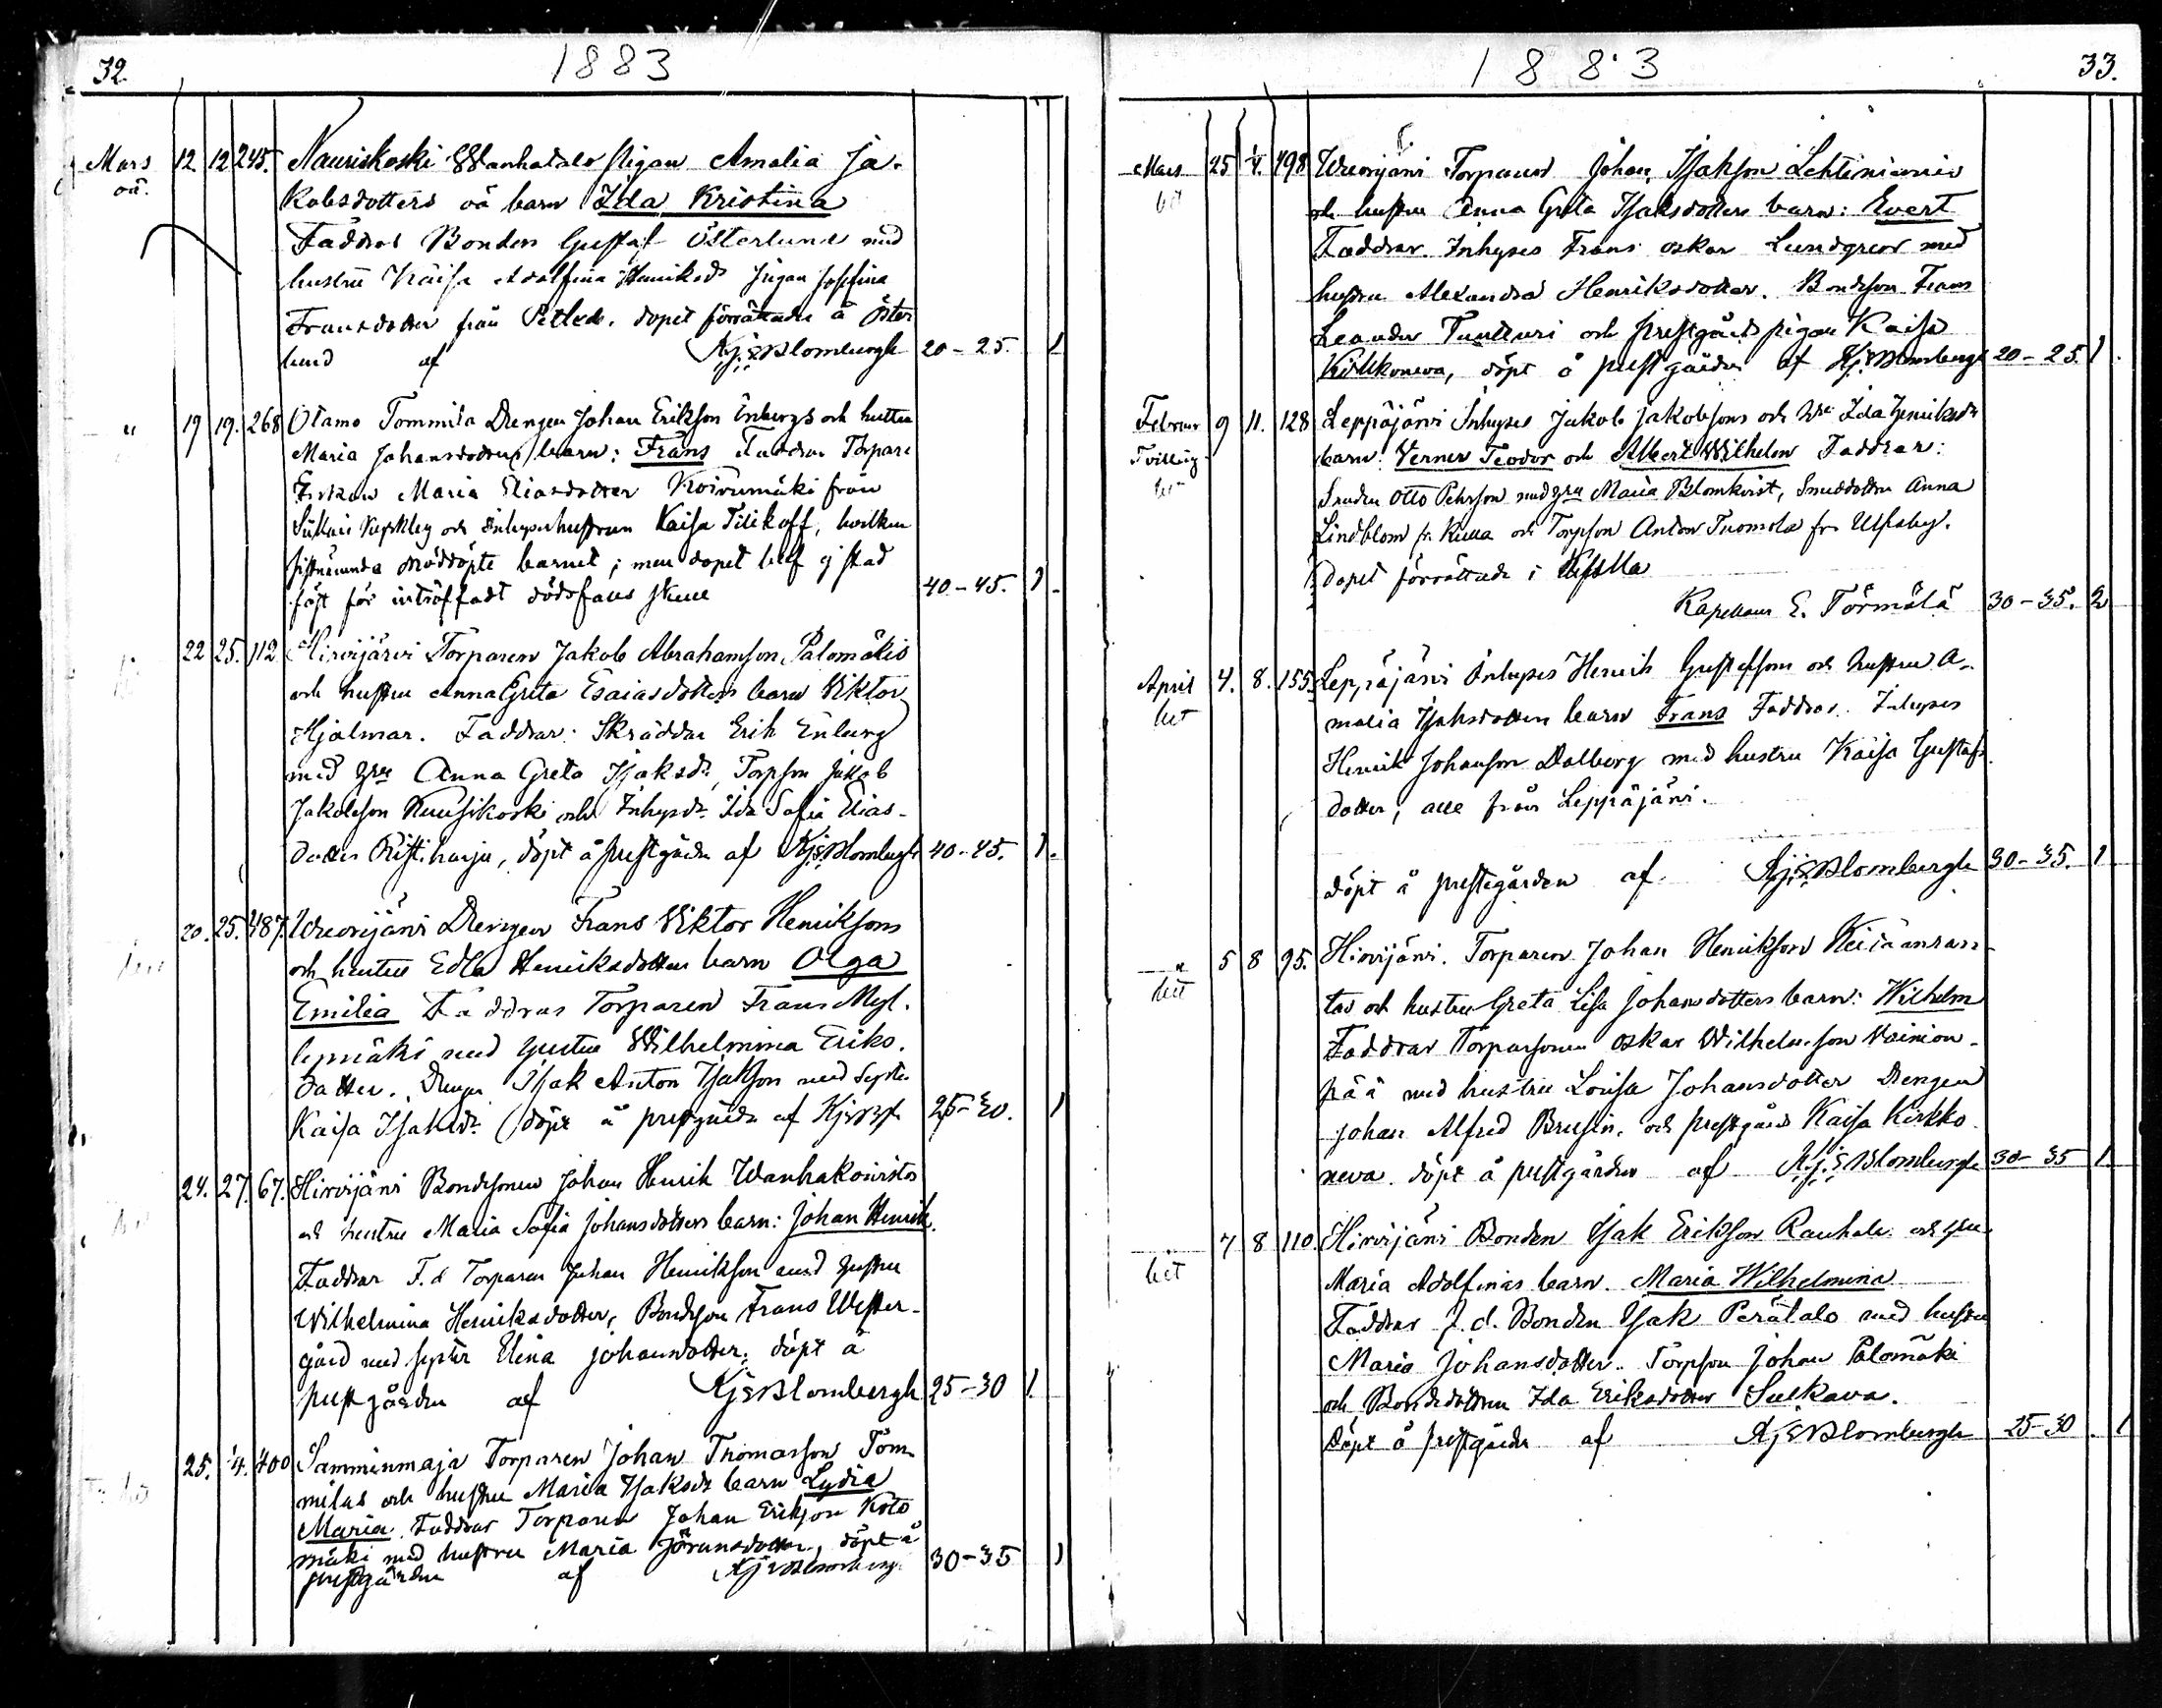 32.
1883
Mars 12 12 245. Nauriskoski Wanhatalo pigan Amalia Ja-
oä. kobsdotters oä barn Ida Kristina
Faddrar Bonden Gustaf Österlund med
hustru Kaisa Adolfina Henriksdr pigan Josefina
Fransdotter från dopet förrättades å Öster
lund af Kj: E: Blombergh 20-25. 1
" 19 19. 268 Otamo Tommila Drengen Johan Erikson Enbergs och hustru
Maria Johansdotters barn: Frans Faddrar Torpare
Enkan Maria Eliasdotter Koivumäki från
och Inhyseshustrun Kaisa Tilikoff, hvilken
sistnämnda nöddöpte barnet; men dopet blef ej stad
fäst för inträffadt dödsfalls skull 40-45. 1
22 25. 112 Hirvijärvi Torparen Jakob Abrahamson Palomäkis
och hustru Anna Greta Esaiasdotters barn Viktor
Hjalmar. Faddrar: Skräddar Erik Enberg
med hru Anna Greta Isaksdr, Torpson Jakob
Jakobson Kuusikoski och Inhysdr. Ida Sofia Elias-
dotter Ristiharju, döpt å prestgården af Kj: E: Blombergh 40-45. 1.
20. 25. 487. Wreevijärvi Drengen Frans Viktor Henriksons
och hustru Edla Henriksdotters barn Olga
Emilia Faddrar Torparen Frans Myl-
lymäki med hustru Wilhelmina Eriks-
dotter. Dreng Isak Anton Isakson med syster
Kaisa Isaksdr. döpt å prestgården af Kj: E: Bgh 25-30. 1
24. 27. 67. Hirvijärvi Bondsonen Johan Henrik Wanhakoivistos
och hustru Maria Sofia Johansdotters barn: Johan Henrik.
Faddrar F.d Torparen Johan Henrikson med hustru
Wilhelmina Henriksdotter, Bondson Frans Wester-
gård med syster Elina Johansdotter. döpt å
prestgården af Kj: E: Blombergh 25-30 1.
25. 1/4. 400 Samminmaja Torparen Johan Thomasson Tom-
milas och hustru Maria Isaksdr barn Lydia
Maria. Faddrar Torparen Johan Erikson Koto
mäki med hustru Maria Göransdotter, döpt å
prestgården af Kj: E: Blombergh 30-35 1
1883
33.
Mars 25 1/4. 498 Wreevijärvi Torparen Johan Isakson Lehtiniemis
och hustru Anna Greta Isaksdotters barn: Evert
Faddrar. Inhyses Frans Oskar Lundgren med
hustru Alexandra Henriksdotter. Bondson Frans
Leander Tuuturi och prestgårds pigan Kaisa
Kirkkoneva, döpt å prestgården af Kj: E: Blombergh 20-25. 1.
Februar 9 11. 128 Leppäjärvi Inhyses Jakob Jakobsons och hru Ida Henriksdr
Tvilling barn: Verner Teodor och Albert Wilhelm Faddrar:
Smeden Otto Pehrson med hru Maria Blomkvist, Smeddotter Anna
Lindblom fr. Kulla och Torpson Anton Tuomola fr. Ulfsby.
Dopet förrättade i
Kapellan E. Törmälä 30-35. 2
April 4. 8. 155. Leppäjärvi Inhyses Henrik Gustafsson och hustru A-
malia Isaksdotters barn Frans Faddrar. Inhyses
Henrik Johanson Dalberg med hustru Kaisa Gustafs
dotter, alla från Leppäjärvi.
döpt å prestegården af Kj: E: Blombergh 30-35. 1
" 5 8 95. Hirvijärvi. Torparen Johan Henrikson Keisäanran-
tas och hustru Greta Lisa Johansdotters barn: Wilhelm
Faddrar Torparsonen Oskar Wilhelmson Vainion-
pää med hustru Lovisa Johansdotter Drengen
Johan Alfred Brusin. och prestgårds Kaisa Kirkko-
neva. döpt å prestgården af Kj: E: Blombergh 30-35 1.
7 8 110. Hirvijärvi Bonden Isak Erikson Rauhala och hru
Maria Adolfinas barn. Maria Wilhelmina
Faddrar f.d. Bonden Isak Perätalo med hustru
Maria Johansdotter. Torpson Johan Palomäki
och Bondedottren Ida Eriksdotter Sulkava.
Döpt å prestgården af Kj: E: Blombergh 25-30 1